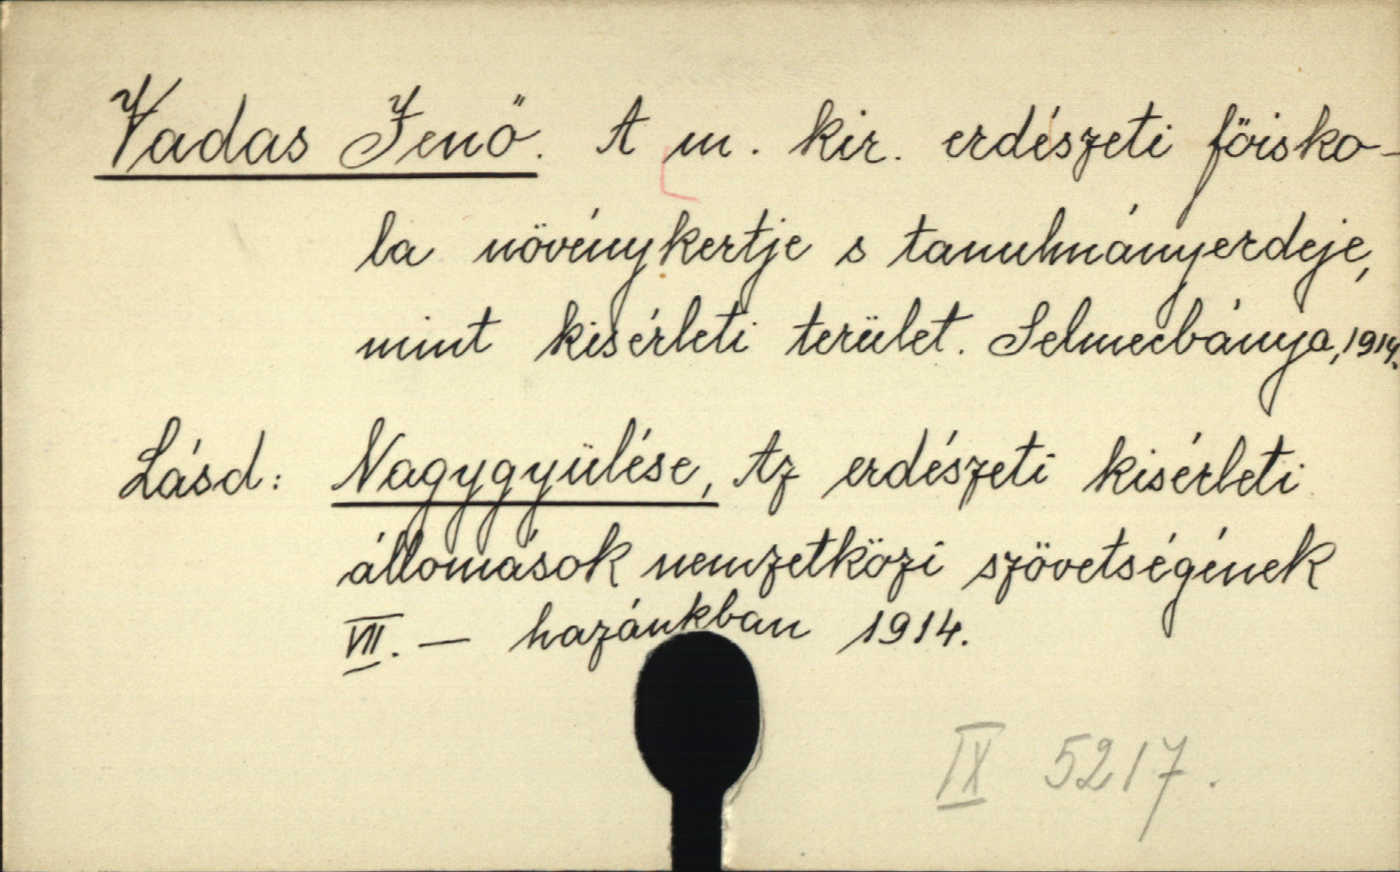 Vadas Jenő. A m. kir. erdészeti főisko-
la növénykertje s tanulmányerdeje,
mint kisérleti terület. Selmecbánya, 1914.
Lásd: Nagygyülése, Az erdészeti kisérleti
állomások nemzetközi szövetségének
VII. — hazánkban 1914.
IX 5217.